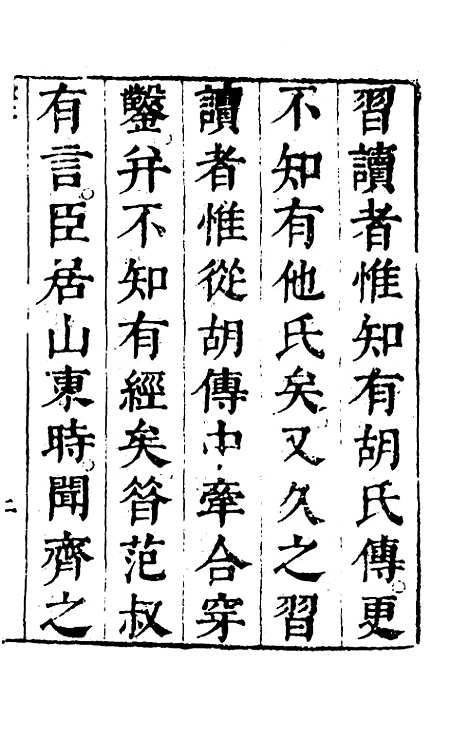 習讀者惟知有胡氏傳更
不知有他氏矣又久之習
讀者惟從胡傳中牽合穿
鑿并不知有經矣昝范叔
有言臣居山東時聞齊之
二